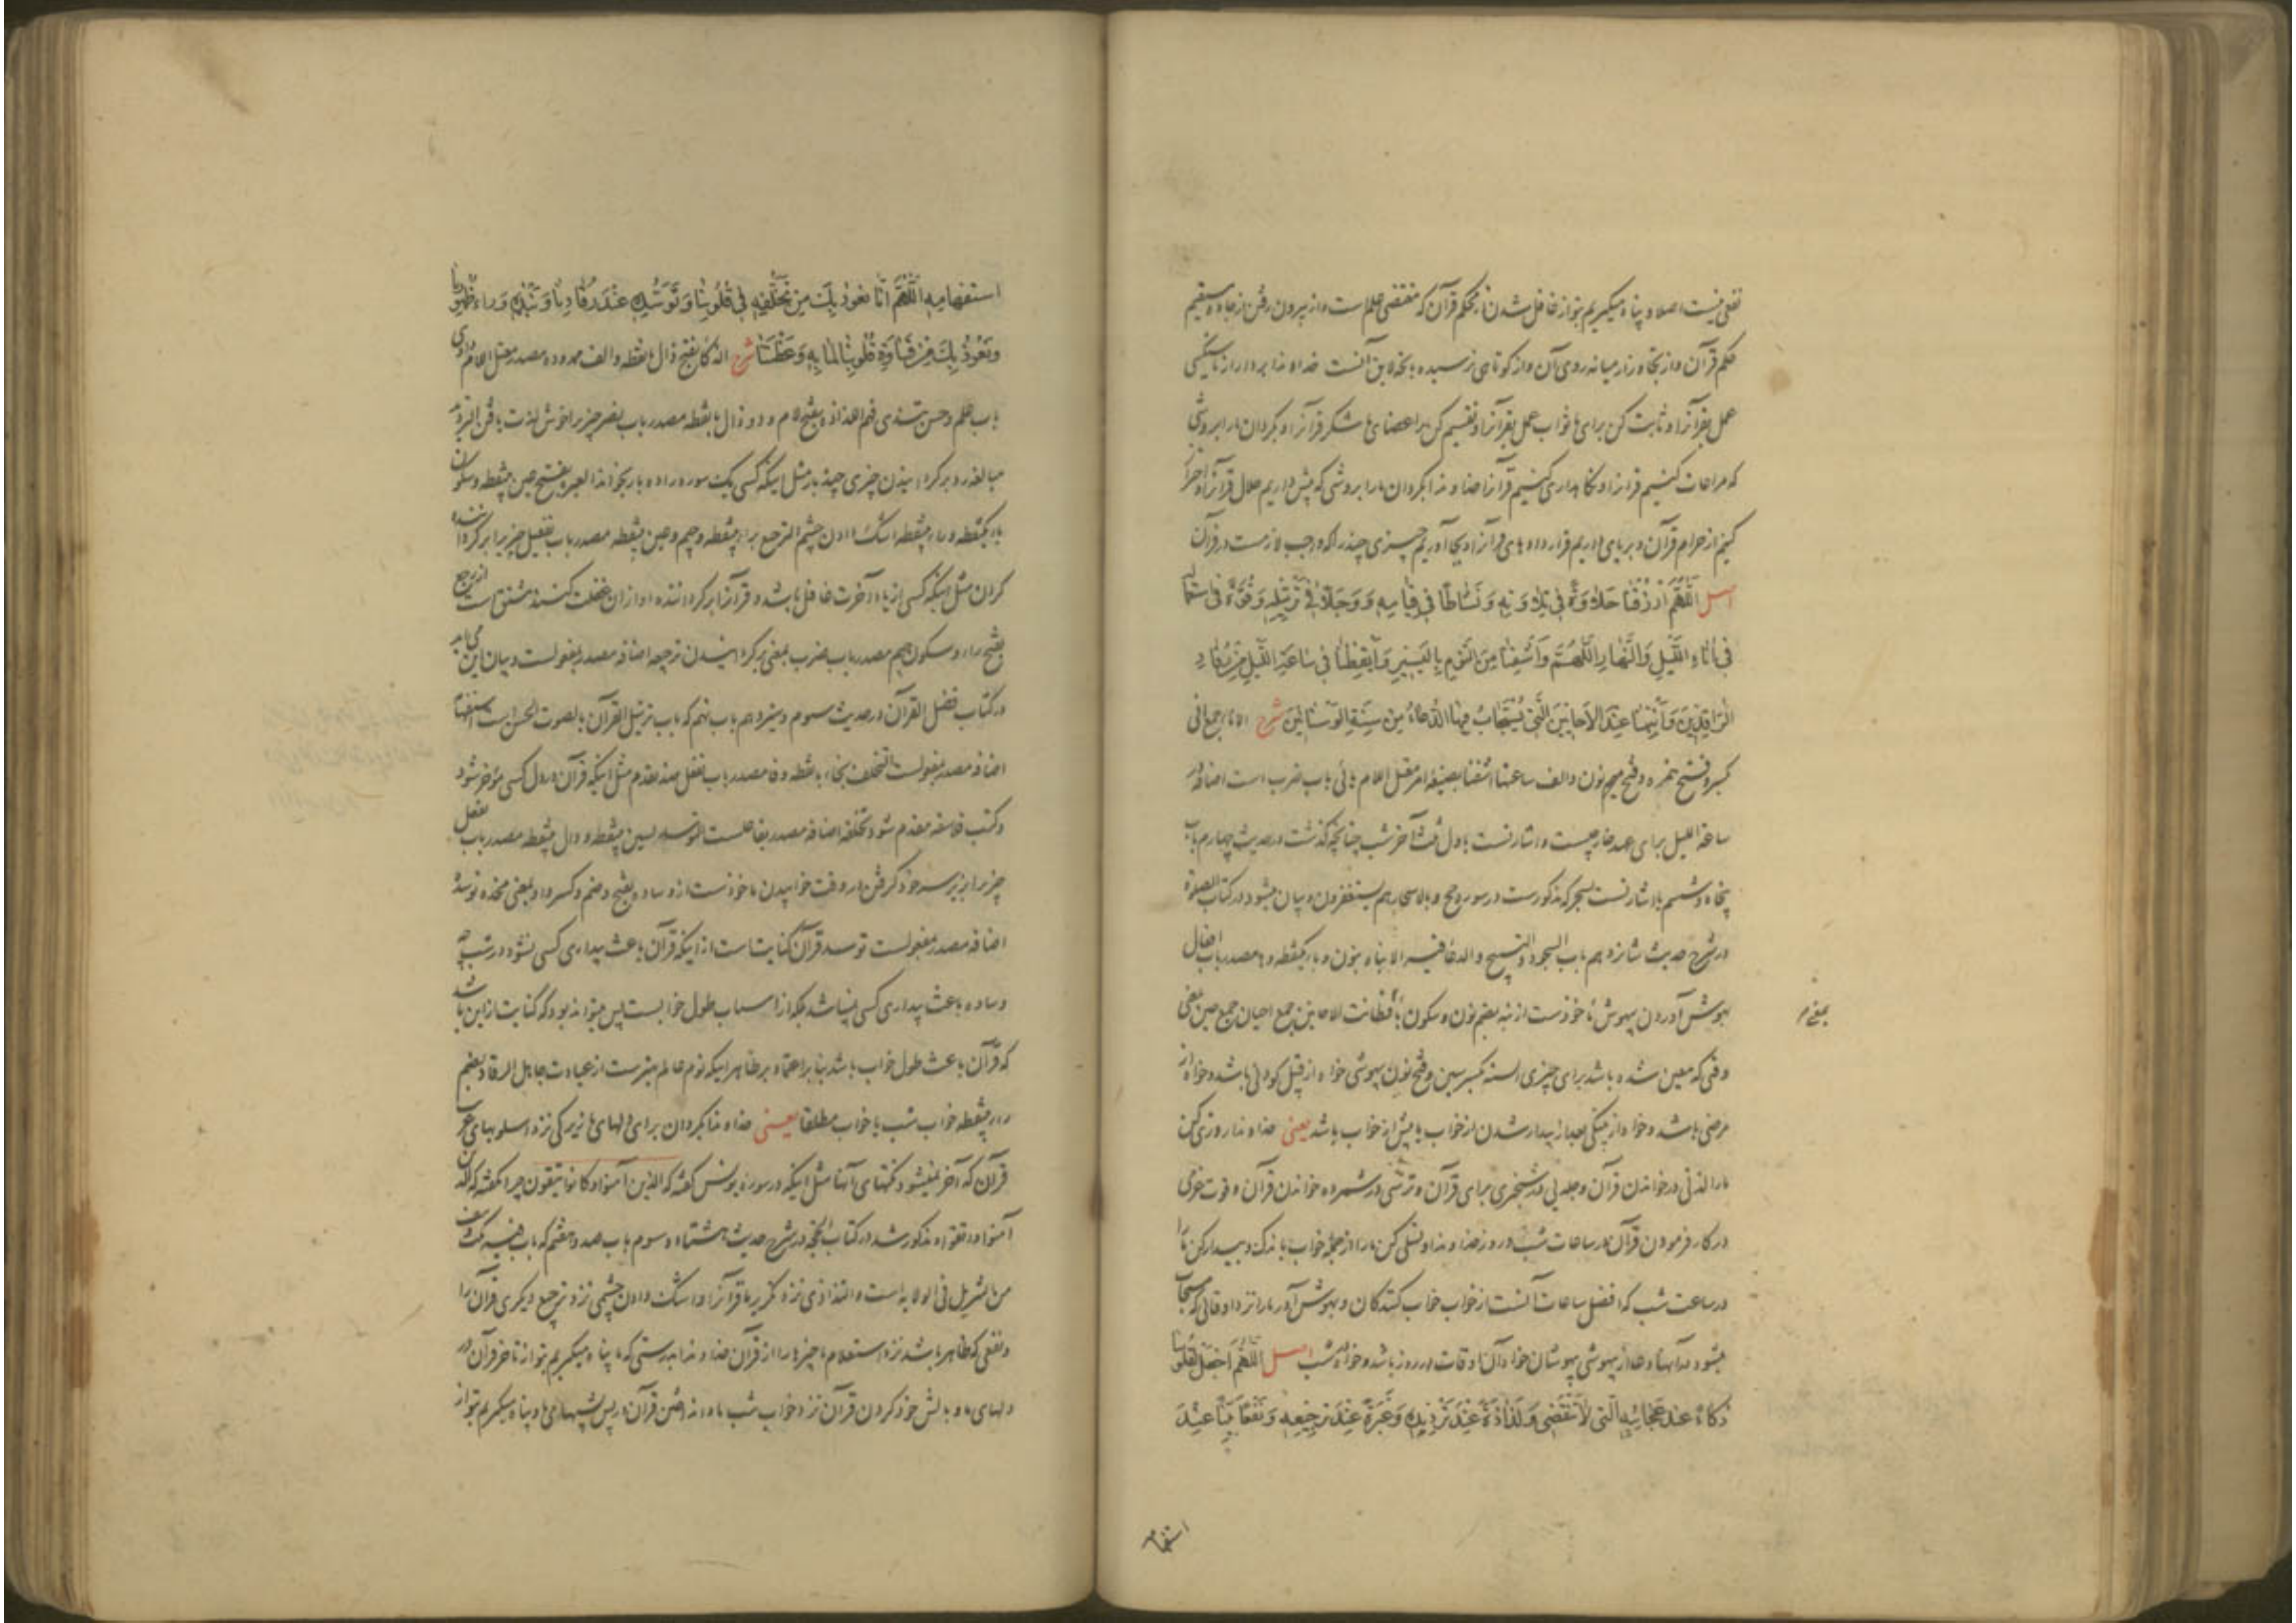 نفعی نیست اصلا و پناه میگیریم بتو از غافل شدن از محکم قرآن که مقتضی علم است و از بیرون رفتن از جاده مستقیم
حکم قرآن و از تجاوز از میانه روی آن و از کوتاهی نرسیده بحد لایق آنست خداوندا بردار از ما سنگینی
عمل بقرآنرا و ثابت کن برای ما ثواب عمل بقرآنرا و تقسیم کن بر اعضای ما شکر قرآنرا و بگردان ما را بروشی
که مراعات کنیم قرآنرا و نگاهداری کنیم قرآنرا خداوندا بگردان ما را بروشی که پیش داریم حلال قرآنرا و احتراز
کنیم از حرام قرآن و برپای داریم قرار دادهای قرآنرا و بجا آوریم چیزی چند را که واجب لازمست در قرآن
اصل اللَّهُمَّ ارْزُقْنَا حَلَاوَةً فِي تِلَاوَتِهِ وَنَشَاطًا فِي قِيَامِهِ وَوَجَلًا فِي تَرْتِيلِهِ وَقُوَّةً فِي اسْتِعْمَالِهِ
فِي آنَاءِ اللَّيْلِ وَالنَّهَارِ اللَّهُمَّ وَاشْفِنَا مِنَ النَّوْمِ بِالْيَسِيرِ وَأَيْقِظْنَا فِي سَاعَةِ اللَّيْلِ مِنْ رُقَادِ
الرَّاقِدِينَ وَأَنْبِهْنَا عِنْدَ الْأَحَايِينِ الَّتِي يُسْتَجَابُ فِيهَا الدُّعَاءُ مِنْ سِنَةِ الْوَسْنَانِينَ شرح الآناء جمع انی
بکسر و فتح همزه و فتح نون و الف ساعتها اشفنا بصیغه امر معتل اللام یائی باب ضرب است اضافه در
ساعة اللیل برای عهد خارجیست و اشارتست باول ثلث آخر شب چنانچه گذشت در حدیث چهارم باب
پنجاه و ششم یا اشارتست بسحر که مذکورست در سوره و بالاسحار هم یستغفرون و بیان میشود در کتاب الصلوة
در شرح حدیث شانزدهم باب السجود و التسبیح و الدعا فیه الانباه بنون و باء یکنقطه و ها مصدر باب افعال
بهوش آوردن بیهوش ماخوذست از نبه بضم نون و سکون باء فطانت الاحایین جمع احیان جمع حین بمعنی
وقتی که معین شده باشد برای چیزی السنه بکسر سین و فتح نون بیهوشی خواه از قبیل کودنی باشد و خواه از
مرضی باشد و خواه از پینکی بعد از بیدار شدن از خواب یا پیش از خواب باشد یعنی خداوندا روزی کن
ما را لذتی در خواندن قرآن و جلدی در شبخیزی برای قرآن و ترسی در شمرده خواندن قرآن و قوت عزمی
در کار فرمودن قرآن در ساعات شب و روز خداوندا و تسلی کن ما را از جمله خواب باندک و بیدار کن ما را
در ساعت شب که افضل ساعات آنست از خواب خواب کنندگان و بهوش آور ما را نزد اوقاتی که مستجاب
میشود در آنها دعا از بیهوشی بیهوشان خواه آن اوقات در روز باشد و خواه در شب اصل اللَّهُمَّ اجْعَلْ لِقُلُوبِنَا
ذَكَاءً عِنْدَ عَجَائِبِهِ الَّتِي لَا تَنْقَضِي وَلَذَاذَةً عِنْدَ تَرْدِيدِهِ وَعِبْرَةً عِنْدَ تَرْجِيعِهِ وَنَفْعًا بَيِّنًا عِنْدَ
استفهام
بمعنی م
اسْتِفْهَامِهِ اللَّهُمَّ إِنَّا نَعُوذُ بِكَ مِنْ تَخَلُّفِهِ فِي قُلُوبِنَا وَتَوَسُّدِهِ عِنْدَ رُقَادِنَا وَنَبْذِهِ وَرَاءَ ظُهُورِنَا
وَنَعُوذُ بِكَ مِنْ قَسَاوَةِ قُلُوبِنَا لِمَا بِهِ وَعَظْتَنَا شرح الذکاء بفتح ذال بانقطه و الف ممدوده مصدر معتل اللام واوی
باب علم و حسن تندی فهم اللذاذه بفتح لام و دو ذال بانقطه مصدر باب نصر چیز را خوش لذت یافتن التردید
مبالغه در و برگردانیدن چیزی چند بار مثل اینکه کسی یک سوره را ده بار بخواند العبره بفتح عین بینقطه و سکون
باء یکنقطه و راء بینقطه اشک دادن چشم الترجیع براء بینقطه و جیم و عین بینقطه مصدر باب تفعیل چیز را برگرداننده
کردن مثل اینکه کسی از یاد آخرت غافل باشد و قرآنرا برگرداننده او از آن غفلت کند مشتق است از رجع
بفتح راء و سکون جیم مصدر باب ضرب بمعنی برگردانیدن ترجیعه اضافه مصدر بمفعولست و بیان این می آید
در کتاب فضل القرآن در حدیث سوم و سیزدهم باب نهم که باب ترتیل القرآن بالصوت الحسن است استفهامه
اضافه مصدر بمفعولست التخلف بخاء بانقطه و فا مصدر باب تفعل ضد تقدم مثل اینکه قرآن در دل کسی مؤخر شود
و کتب فلاسفه مقدم شود تخلفه اضافه مصدر بفاعلست التوسد بسین بینقطه و دال بینقطه مصدر باب تفعل
چیز را زیر سر خود گرفتن در وقت خوابیدن ماخوذست از وساده بفتح و ضم و کسر واو بمعنی مخده توسده
اضافه مصدر بمفعولست توسد قرآن کنایتست از اینکه قرآن باعث بیداری کسی نشود در شب چه
وساده باعث بیداری کسی نمیباشد بلکه از اسباب طول خوابست پس میتواند بود که کنایت از این باشد
که قرآن باعث طول خواب باشد بنابر اعتماد بر ظاهر اینکه نوم عالم بهترست از عبادت جاهل الرقاد بضم
راء بینقطه خواب شب یا خواب مطلقا یعنی خداوندا بگردان برای دلهای ما زیرکی نزد اسلوبهای عجب
قرآن که آخر نمیشود نکتهای آنها مثل اینکه در سوره یونس گفته که الذین آمنوا و کانوا یتقون چرا نگفته که الذین
آمنوا و اتقوا و مذکور شد در کتاب الحجه در شرح حدیث هشتاد و سوم باب صد و هفتم که باب فیه نکت و نتف
من التنزیل فی الولایه است و التذاذی نزد تکریر ما قرآنرا و اشک دادن چشمی نزد ترجیع دیگری قرآن را
و نفعی که ظاهر باشد نزد استعلام ما چیزها را از قرآن خداوندا بدرستی که ما پناه میگیریم بتو از تاخر قرآن در
دلهای ما و بالش خود کردن قرآن نزد خواب شب ما و انداختن قرآن در پس پشتهای ما و پناه میگیریم بتو از